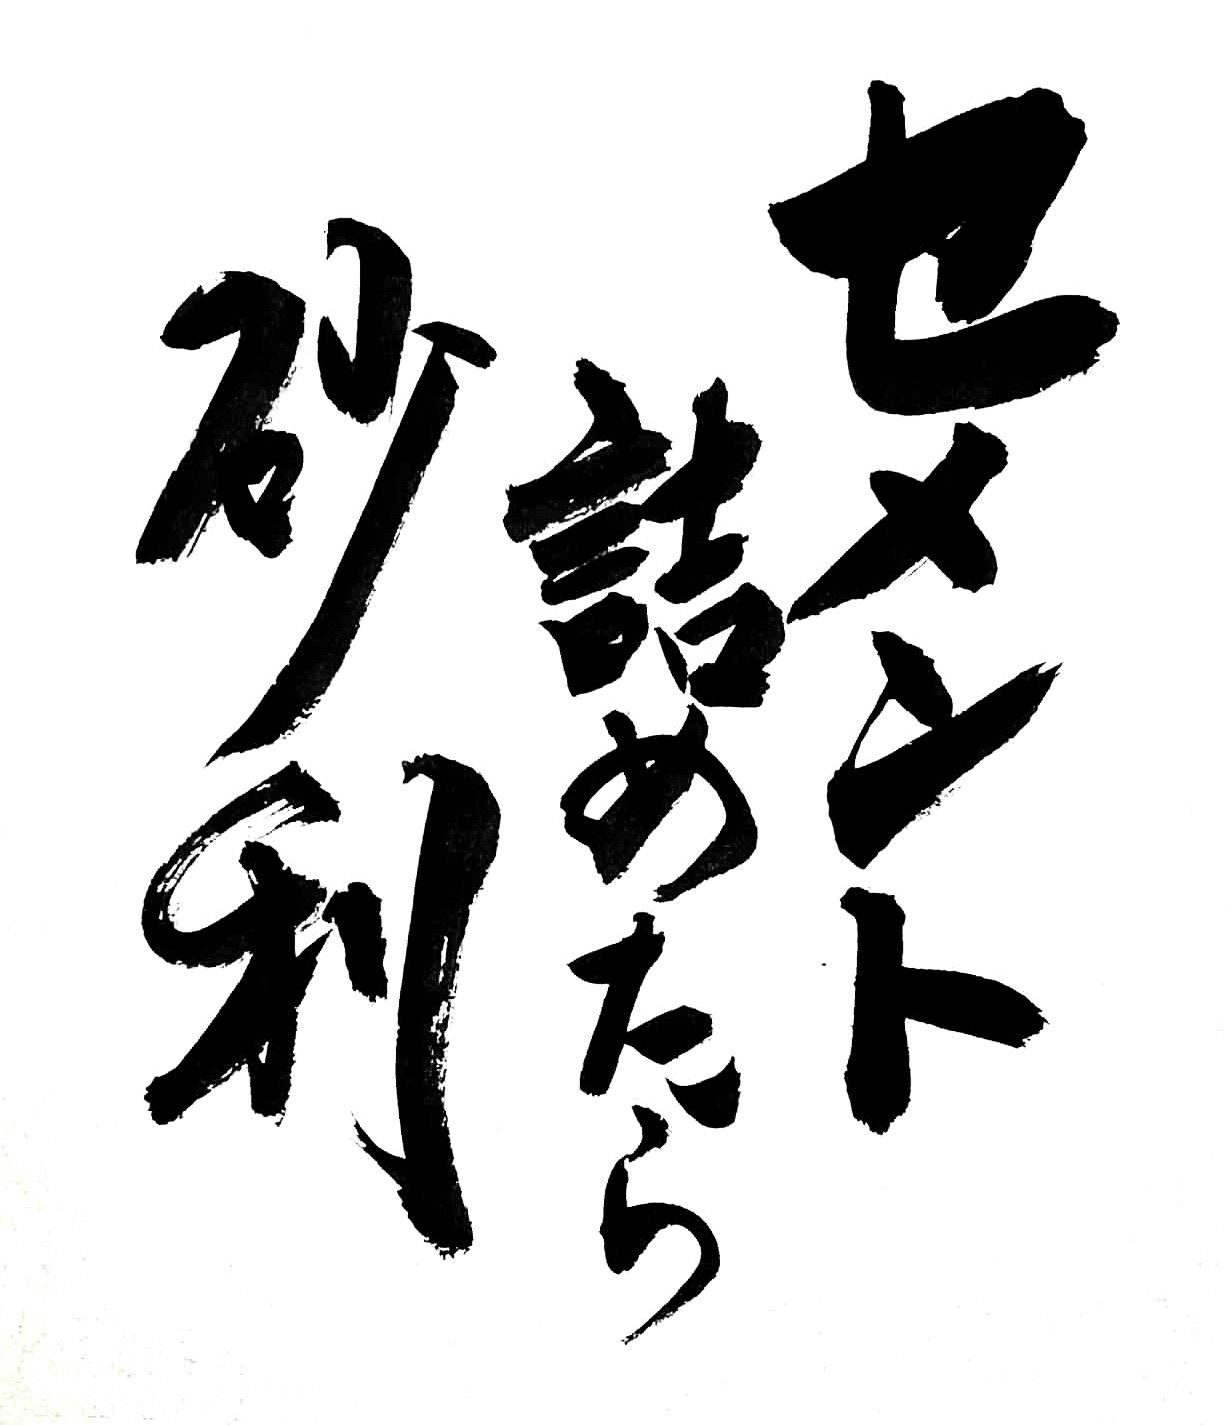 セメント
詰めたら
砂利